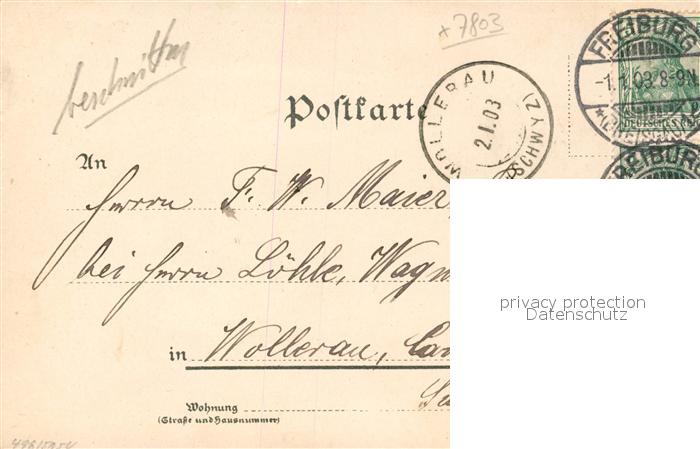 beschnitten
* 7803
Postkarte
WOLLERAU
2.I.03
(SCHWYZ)
FREIBURG
-1.1.03 8-9N
FREIBURG
An
Herrn F. W. Maier,
bei Herrn Löhle, Wagn
in Wollerau,
Wohnung
(Straße und Hausnummer)
privacy protection
Datenschutz